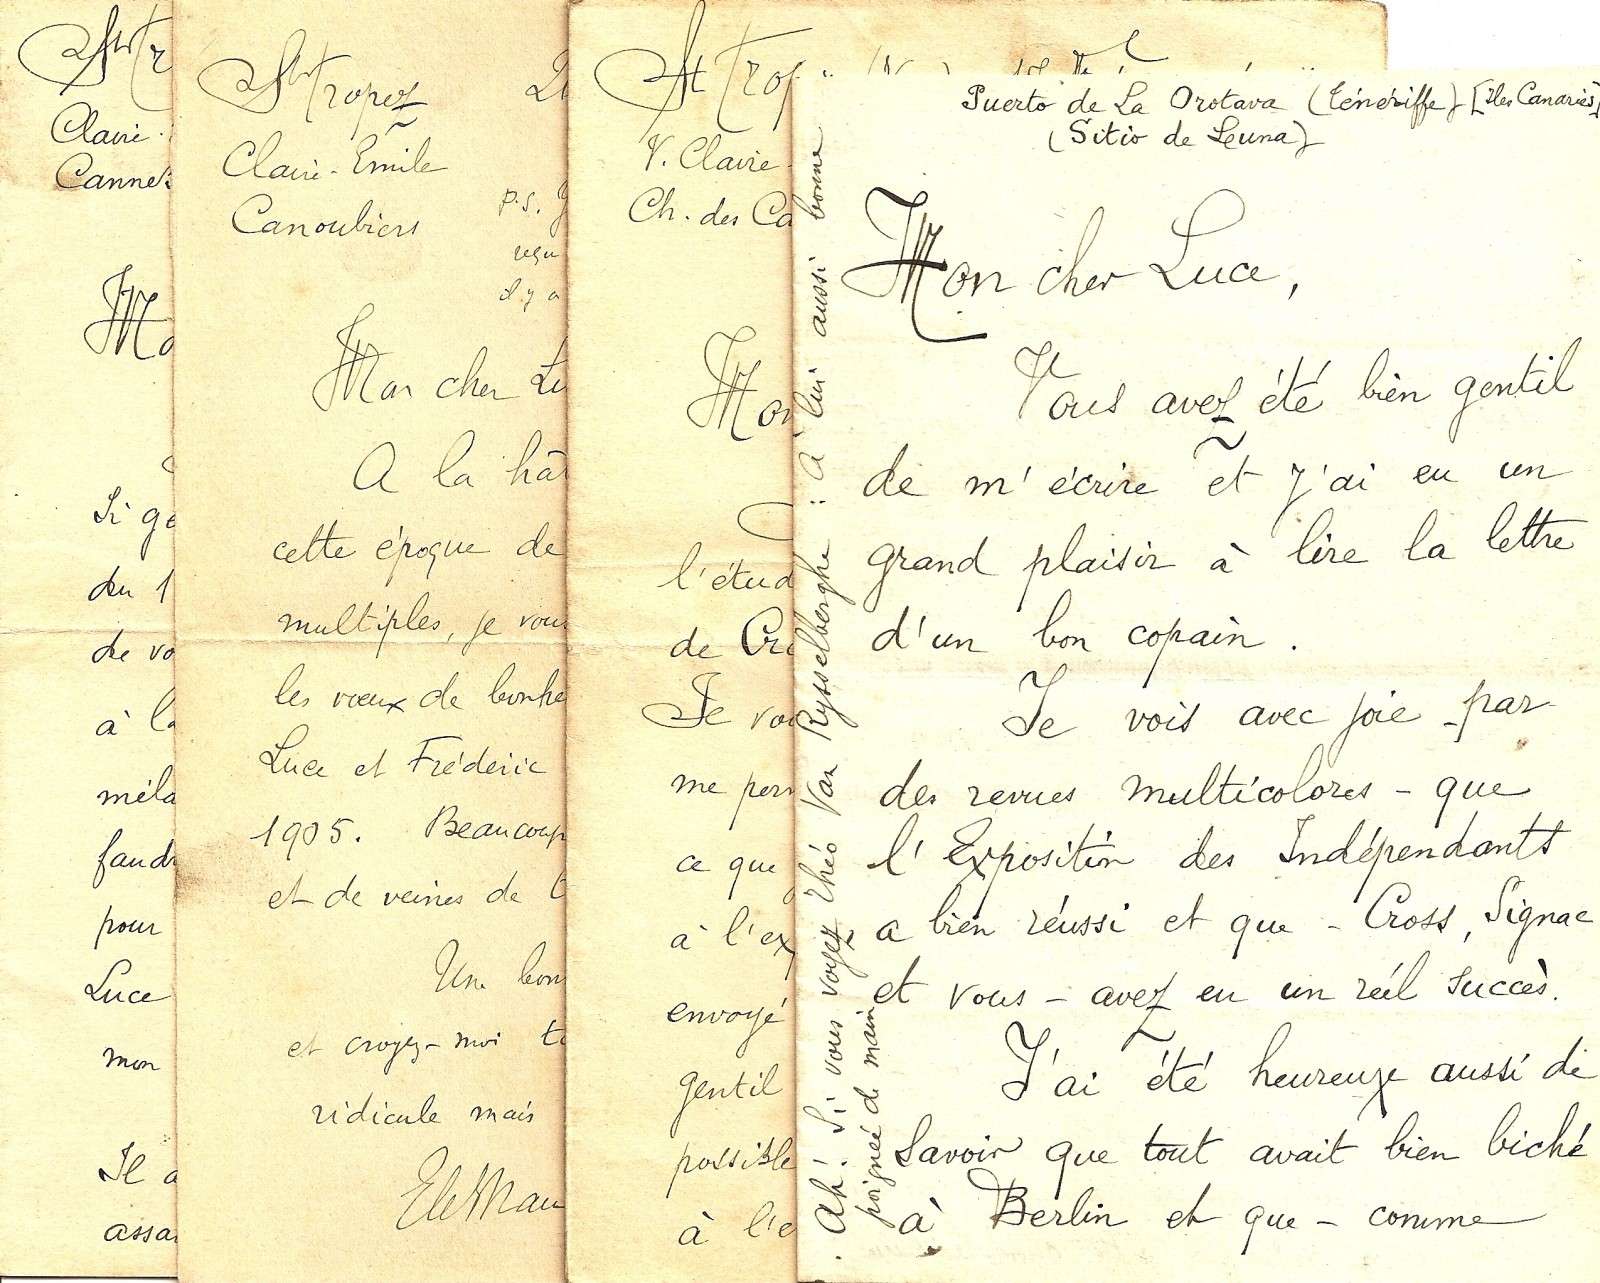 St Tr
Claire
Cannes
Mo
Si ge
du 1
de vo
à la
méla
faudr
pour
Luce
mon
Il a
assa
St Tropez
Claire-Emile
Canoubiers
P.S. J
reçu
il y a
Mon cher Lu
A la hât
cette époque de
multiples, je vous
les vœux de bonhe
Luce et Frédéric
1905. Beaucoup
et de veines de t
Une bon
et croyez-moi to
ridicule mais
EleMan
St Trop
V. Claire
Ch. des Ca
Mon
l'étud
de Cr
Je vou
me per
ce que
à l'ex
envoyé
gentil
possible
à l'e
Puerto de La Orotava (Ténériffe) [Iles Canaries]
(Sitio de Leuna)
Mon cher Luce,
Vous avez été bien gentil
de m'écrire et j'ai eu un
grand plaisir à lire la lettre
d'un bon copain.
Je vois avec joie - par
des revues multicolores - que
l'Exposition des Indépendants
a bien réussi et que - Cross, Signac
et vous - avez eu un réel succès.
J'ai été heureuxe aussi de
savoir que tout avait bien biché
à Berlin et que - comme
Ah! Si vous voyez Théo Van Rysselberghe : à lui aussi bonne
poignée de main